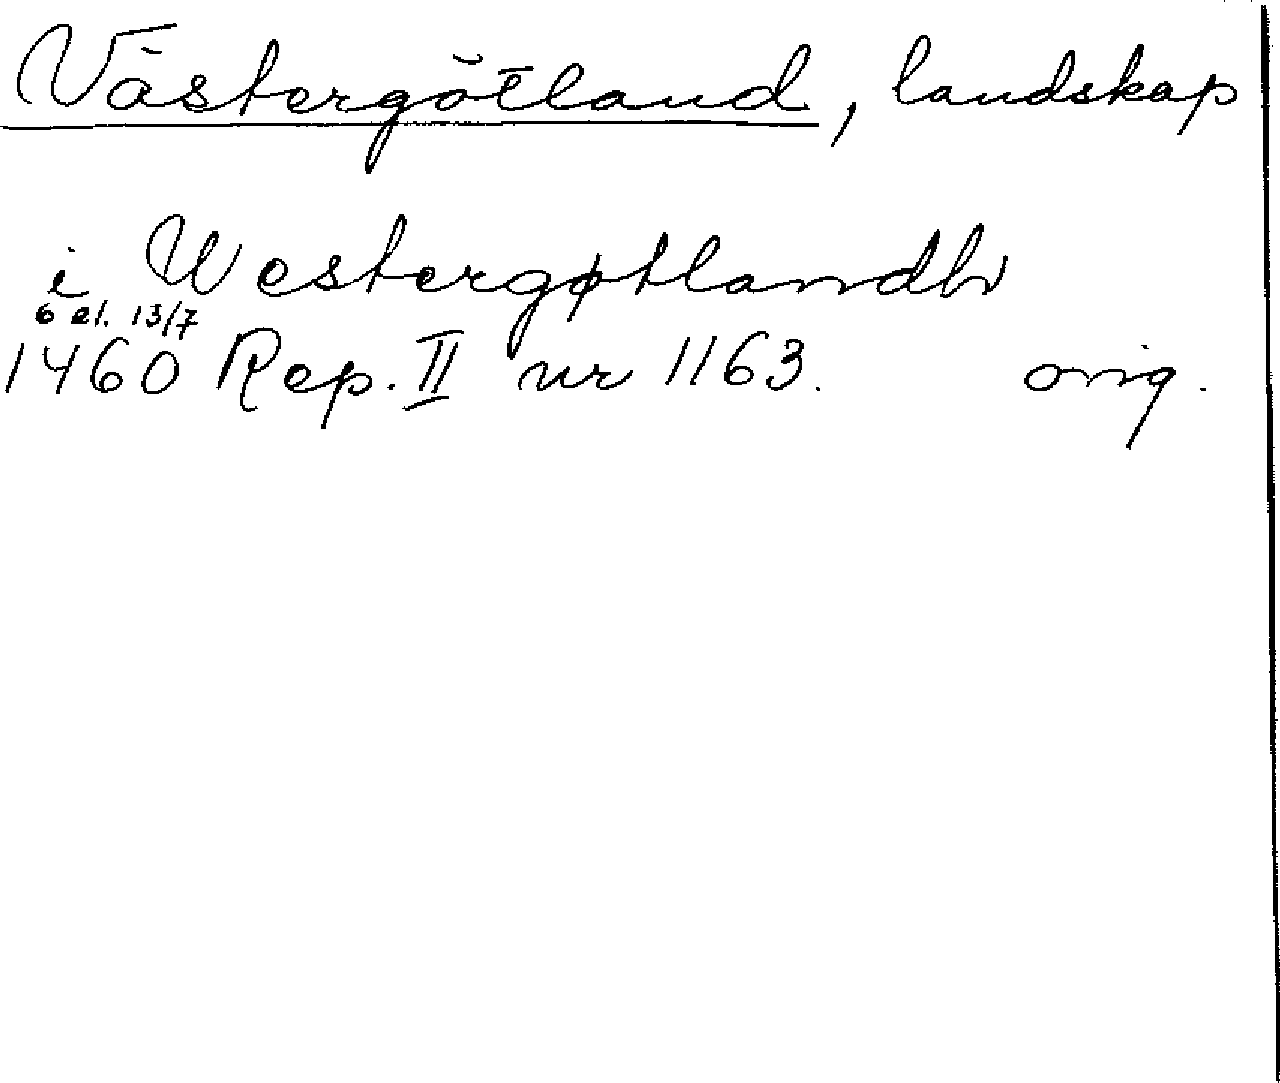 Västergötland, landskap
i Westergøtlandh
6 el. 13/7
1460 Rep. II nr 1163. orig.